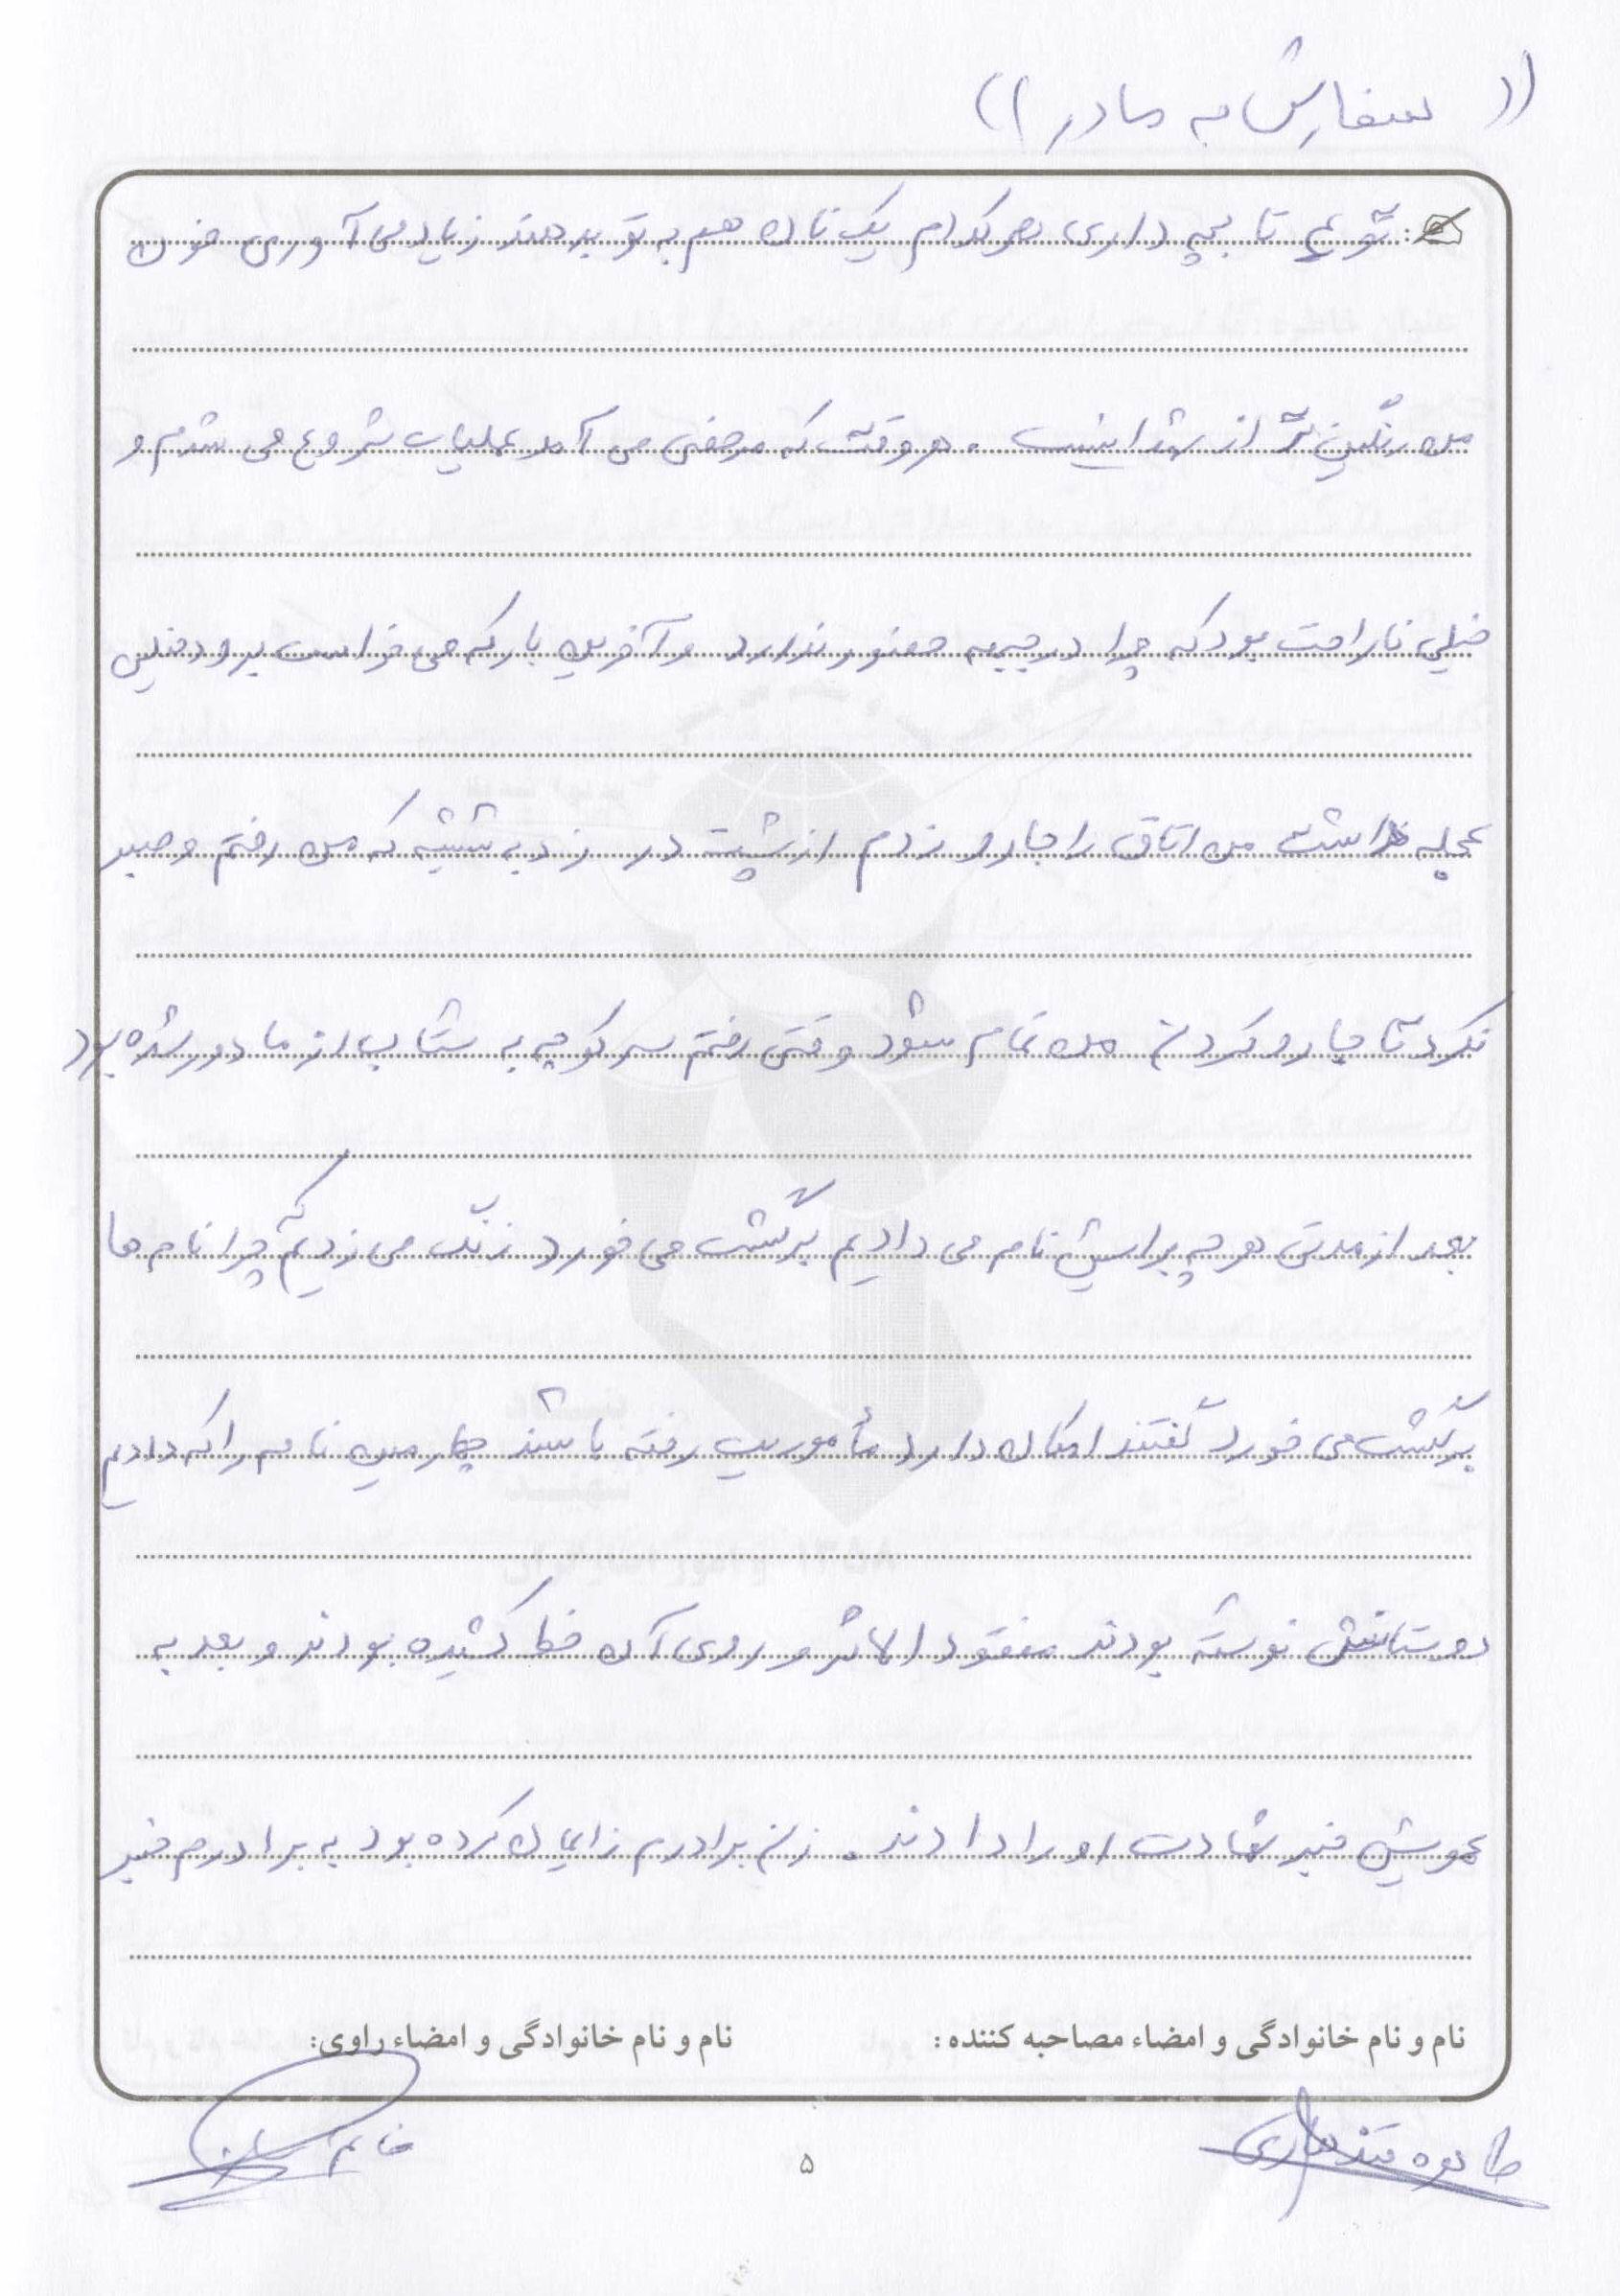 (( سفارش به مادر ))
تو پنج تا بچه داری هر کدام یک نان هم به تو بدهند زیاد می آوری خون
من رنگین تر از شهدا نیست . هر وقت که مرخصی می آمد عملیات شروع می شدم و
خیلی ناراحت بود که چرا در جبهه حضور ندارد و آخرین بار که می خواست برود خیلی
عجله داشت من اتاق را جارو زدم از پشت در زد به شیشه که من رفتم و صبر
نکرد تا جارو کردن من تمام شود وقتی رفتم سر کوچه به شتاب از ما دور شده بود
بعد از مدتی هر چه برایش نامه می دادیم برگشت می خورد زنگ می زدیم که چرا نامه ها
برگشت می خورد گفتند امکان دارد مأموریت رفته باشند چهارمین نامه را که دادیم
دوستانش نوشته بودند مفقود الاثر و روی آن خط کشیده بودند و بعد به
عمویش خبر شهادت او را دادند . زن برادرم زایمان کرده بود به برادرم خبر
نام و نام خانوادگی و امضاء مصاحبه کننده :
نام و نام خانوادگی و امضاء راوی:
طاهره قندهاری
خانم
۵